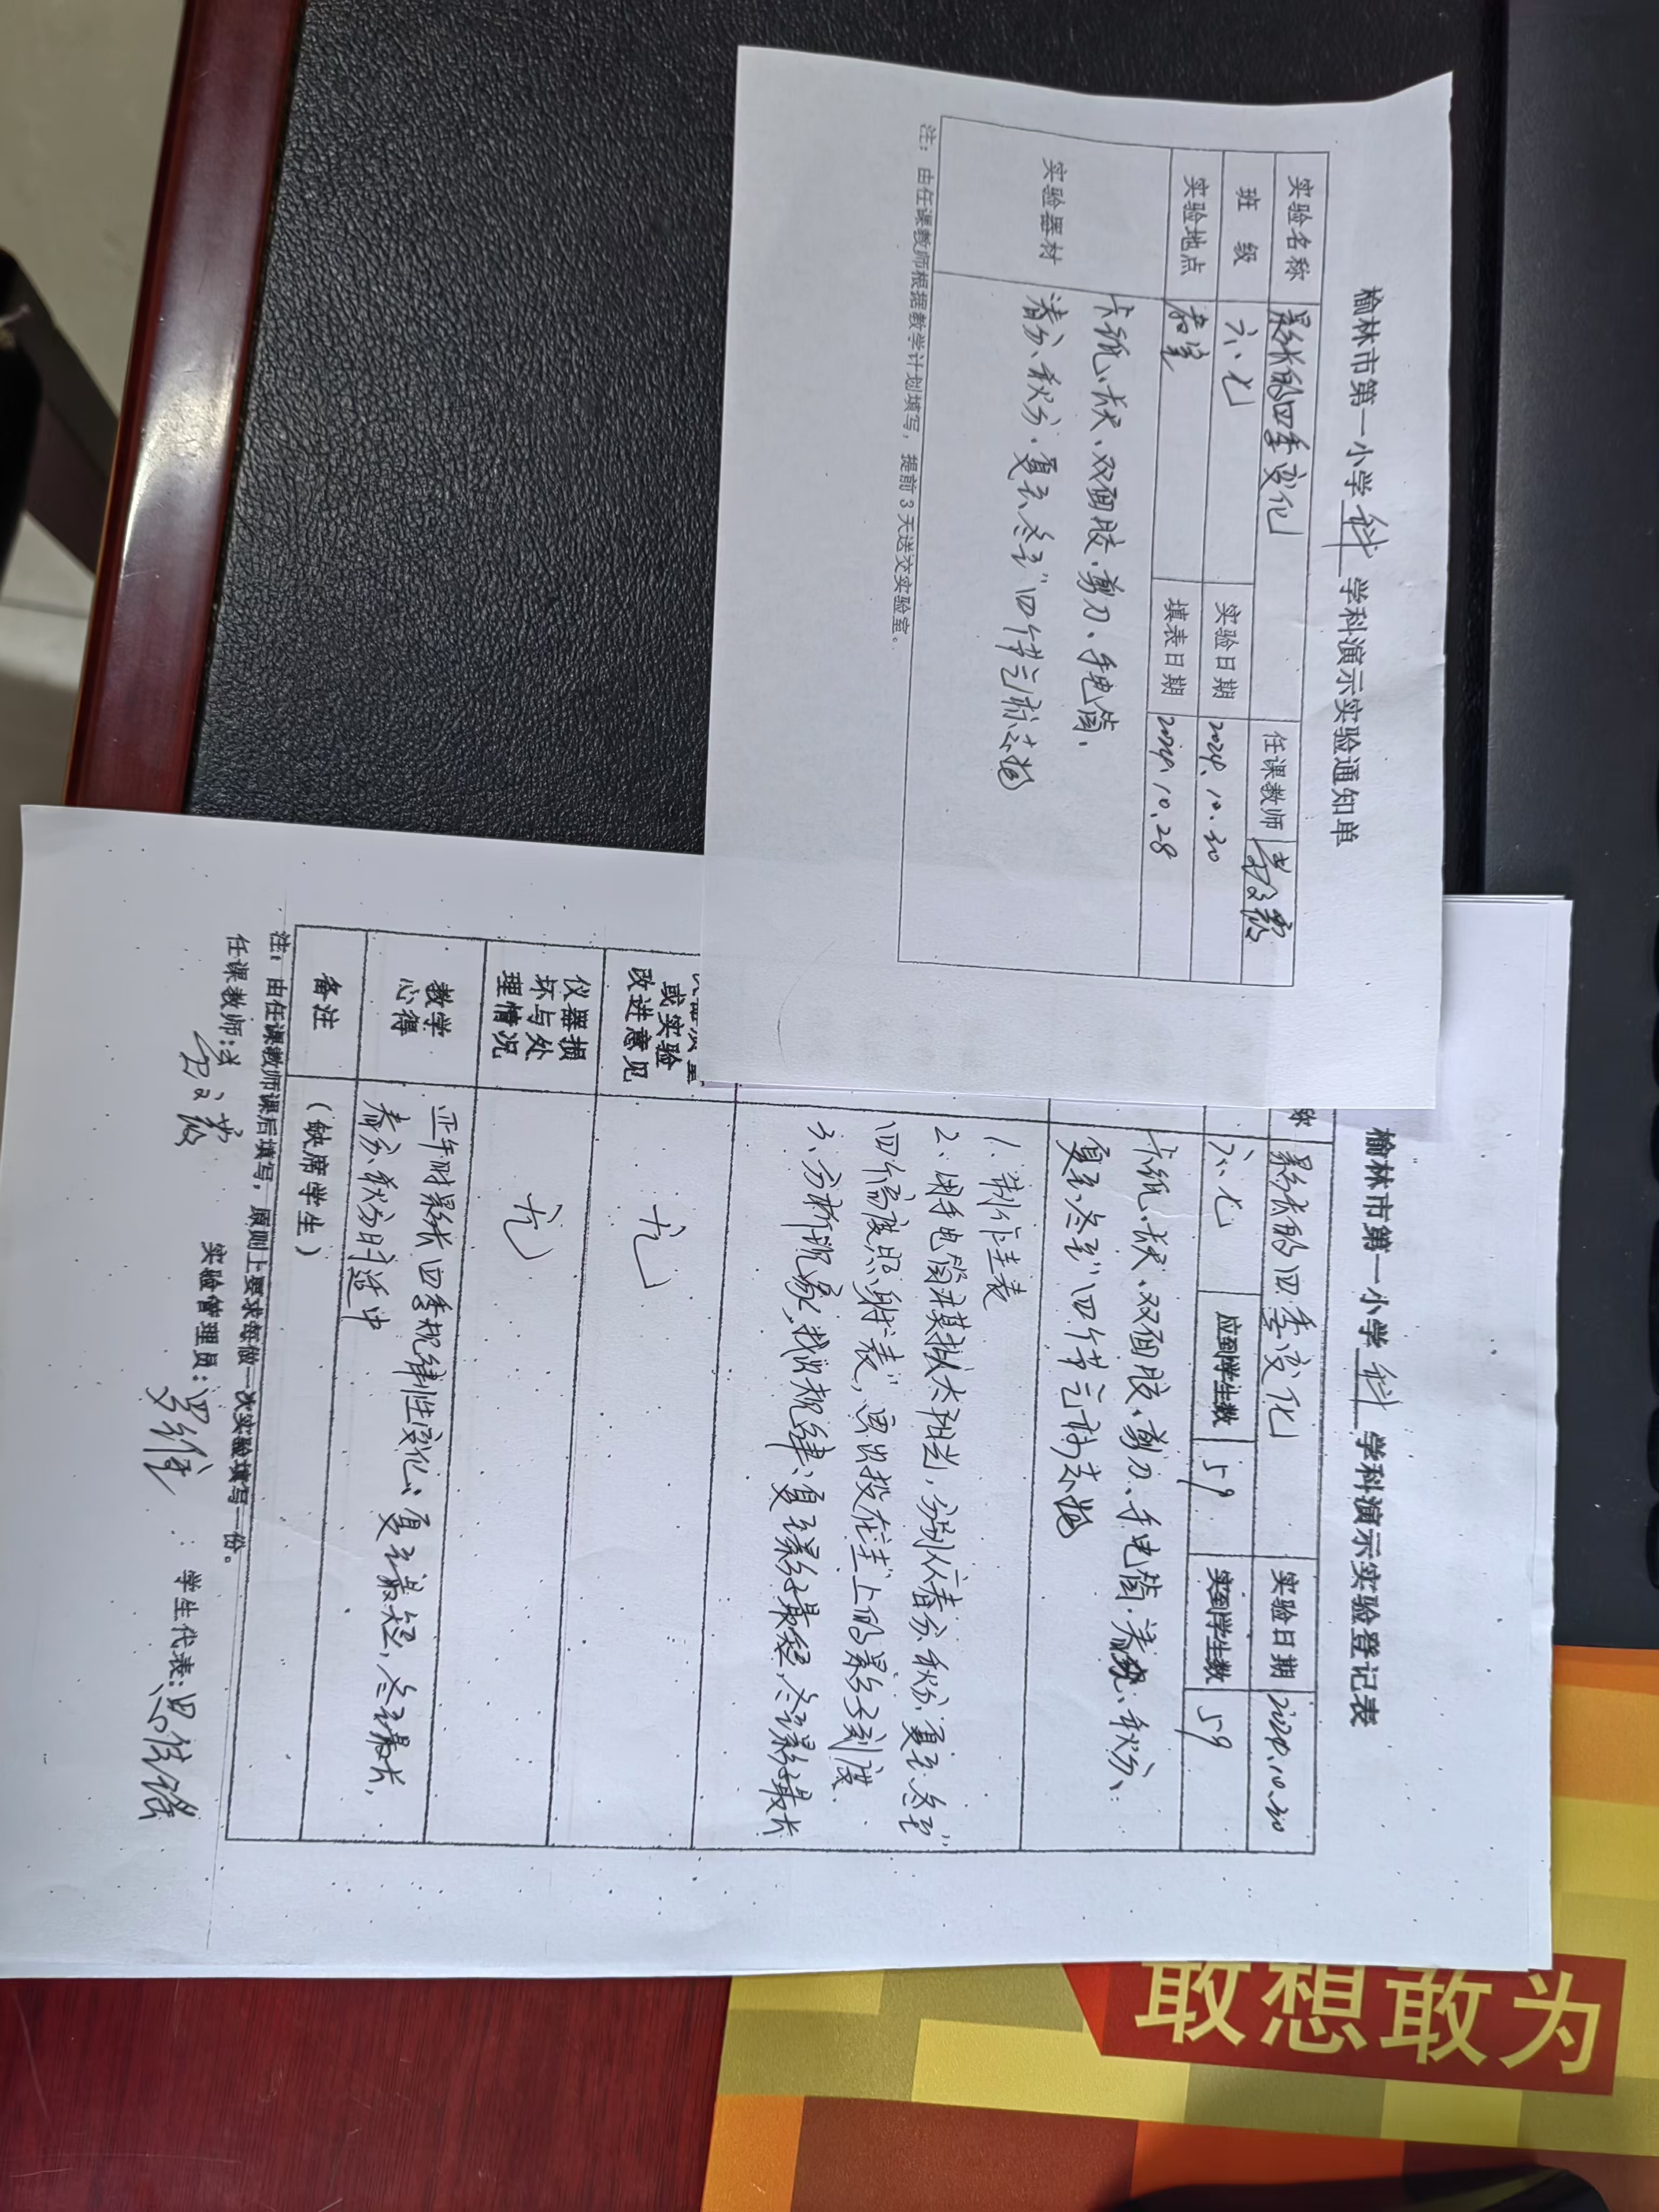 榆林市第一小学科学科演示实验通知单
实验名称 影长的四季变化 任课教师
班 级 六、七 实验日期 2024.10.30
实验地点 教室 填表日期 2024.10.28
实验器材 卡纸、双面胶、剪刀、手电筒、
春分、秋分、夏至、冬至"四个节气标志
注：由任课教师根据教学计划填写，提前3天送交实验室。
榆林市第一小学科学科演示实验登记表
称 影长的四季变化 实验日期 2024.10.30
六、七 应到学生数 59 实到学生数 59
卡纸、双面胶、剪刀、手电筒、秋分、
夏至、冬至"四个节气标志
1、制作圭表
2、用手电筒来模拟太阳光，分别从"春分、秋分、夏至、冬至"
四个高度照射"表"，画出投在圭上的影子刻度.
3、分析现象，找出规律、夏至影子最短，冬至影子最长
或实验
改进意见 无
仪器损
坏与处
理情况 无
教学
心得 正午时影长四季规律性变化：夏至最短，冬至最长，
春分秋分日适中
备注 （缺席学生）
注：由任课教师课后填写，原则上要求每做一次实验填写一份。
任课教师： 实验管理员： 学生代表：
敢想敢为